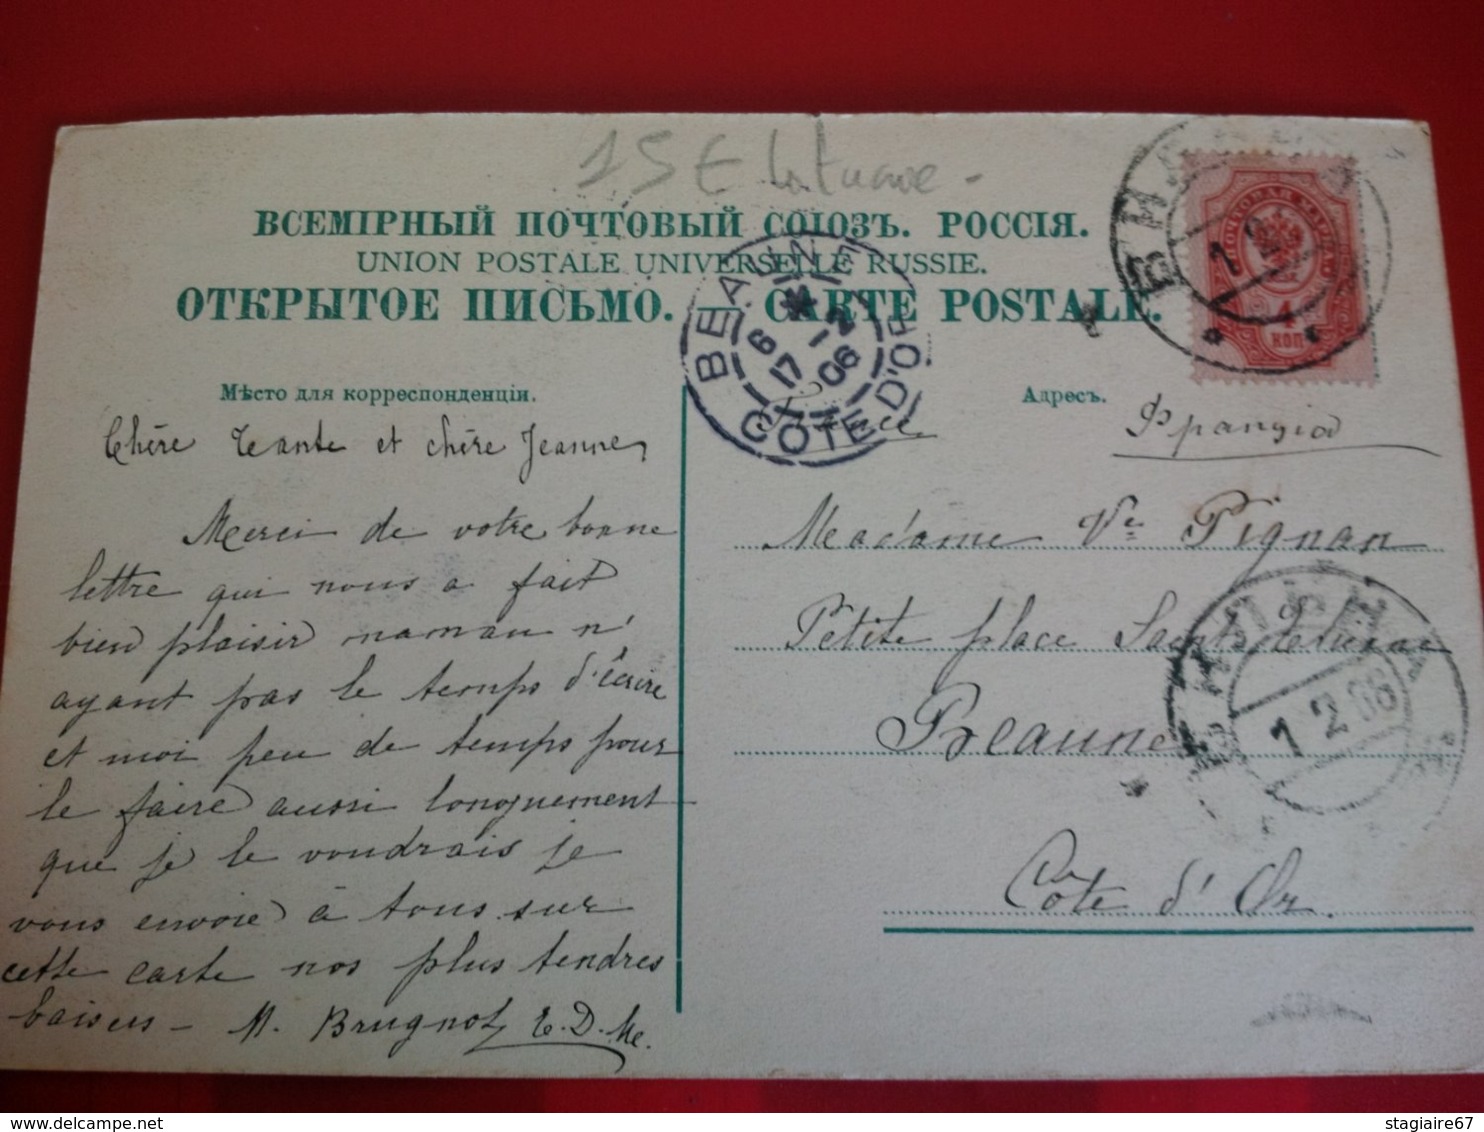 15€
ВСЕМІРНЫЙ ПОЧТОВЫЙ СОЮЗЪ. РОССІЯ.
UNION POSTALE UNIVERSELLE RUSSIE.
ОТКРЫТОЕ ПИСЬМО. — CARTE POSTALE.
Мѣсто для корреспонденціи.
Chère Tante et chère Jeanne,
Merci de votre bonne
lettre qui nous a fait
bien plaisir maman n'
ayant pas le temps d'écrire
et moi peu de temps pour
le faire aussi longuement
que je le voudrais je
vous envoie à tous sur
cette carte nos plus tendres
baisers – M. Brugnot
BEAUNE
6 *
17 -2
06
COTE D'OR
ПОЧТОВАЯ МАРКА
4
КОП
1 2
Адресъ.
France
Франція
Madame Ve Pignan
Petite place Saint Etienne
Beaune
Côte d'Or.
1 2 06
stagiaire67